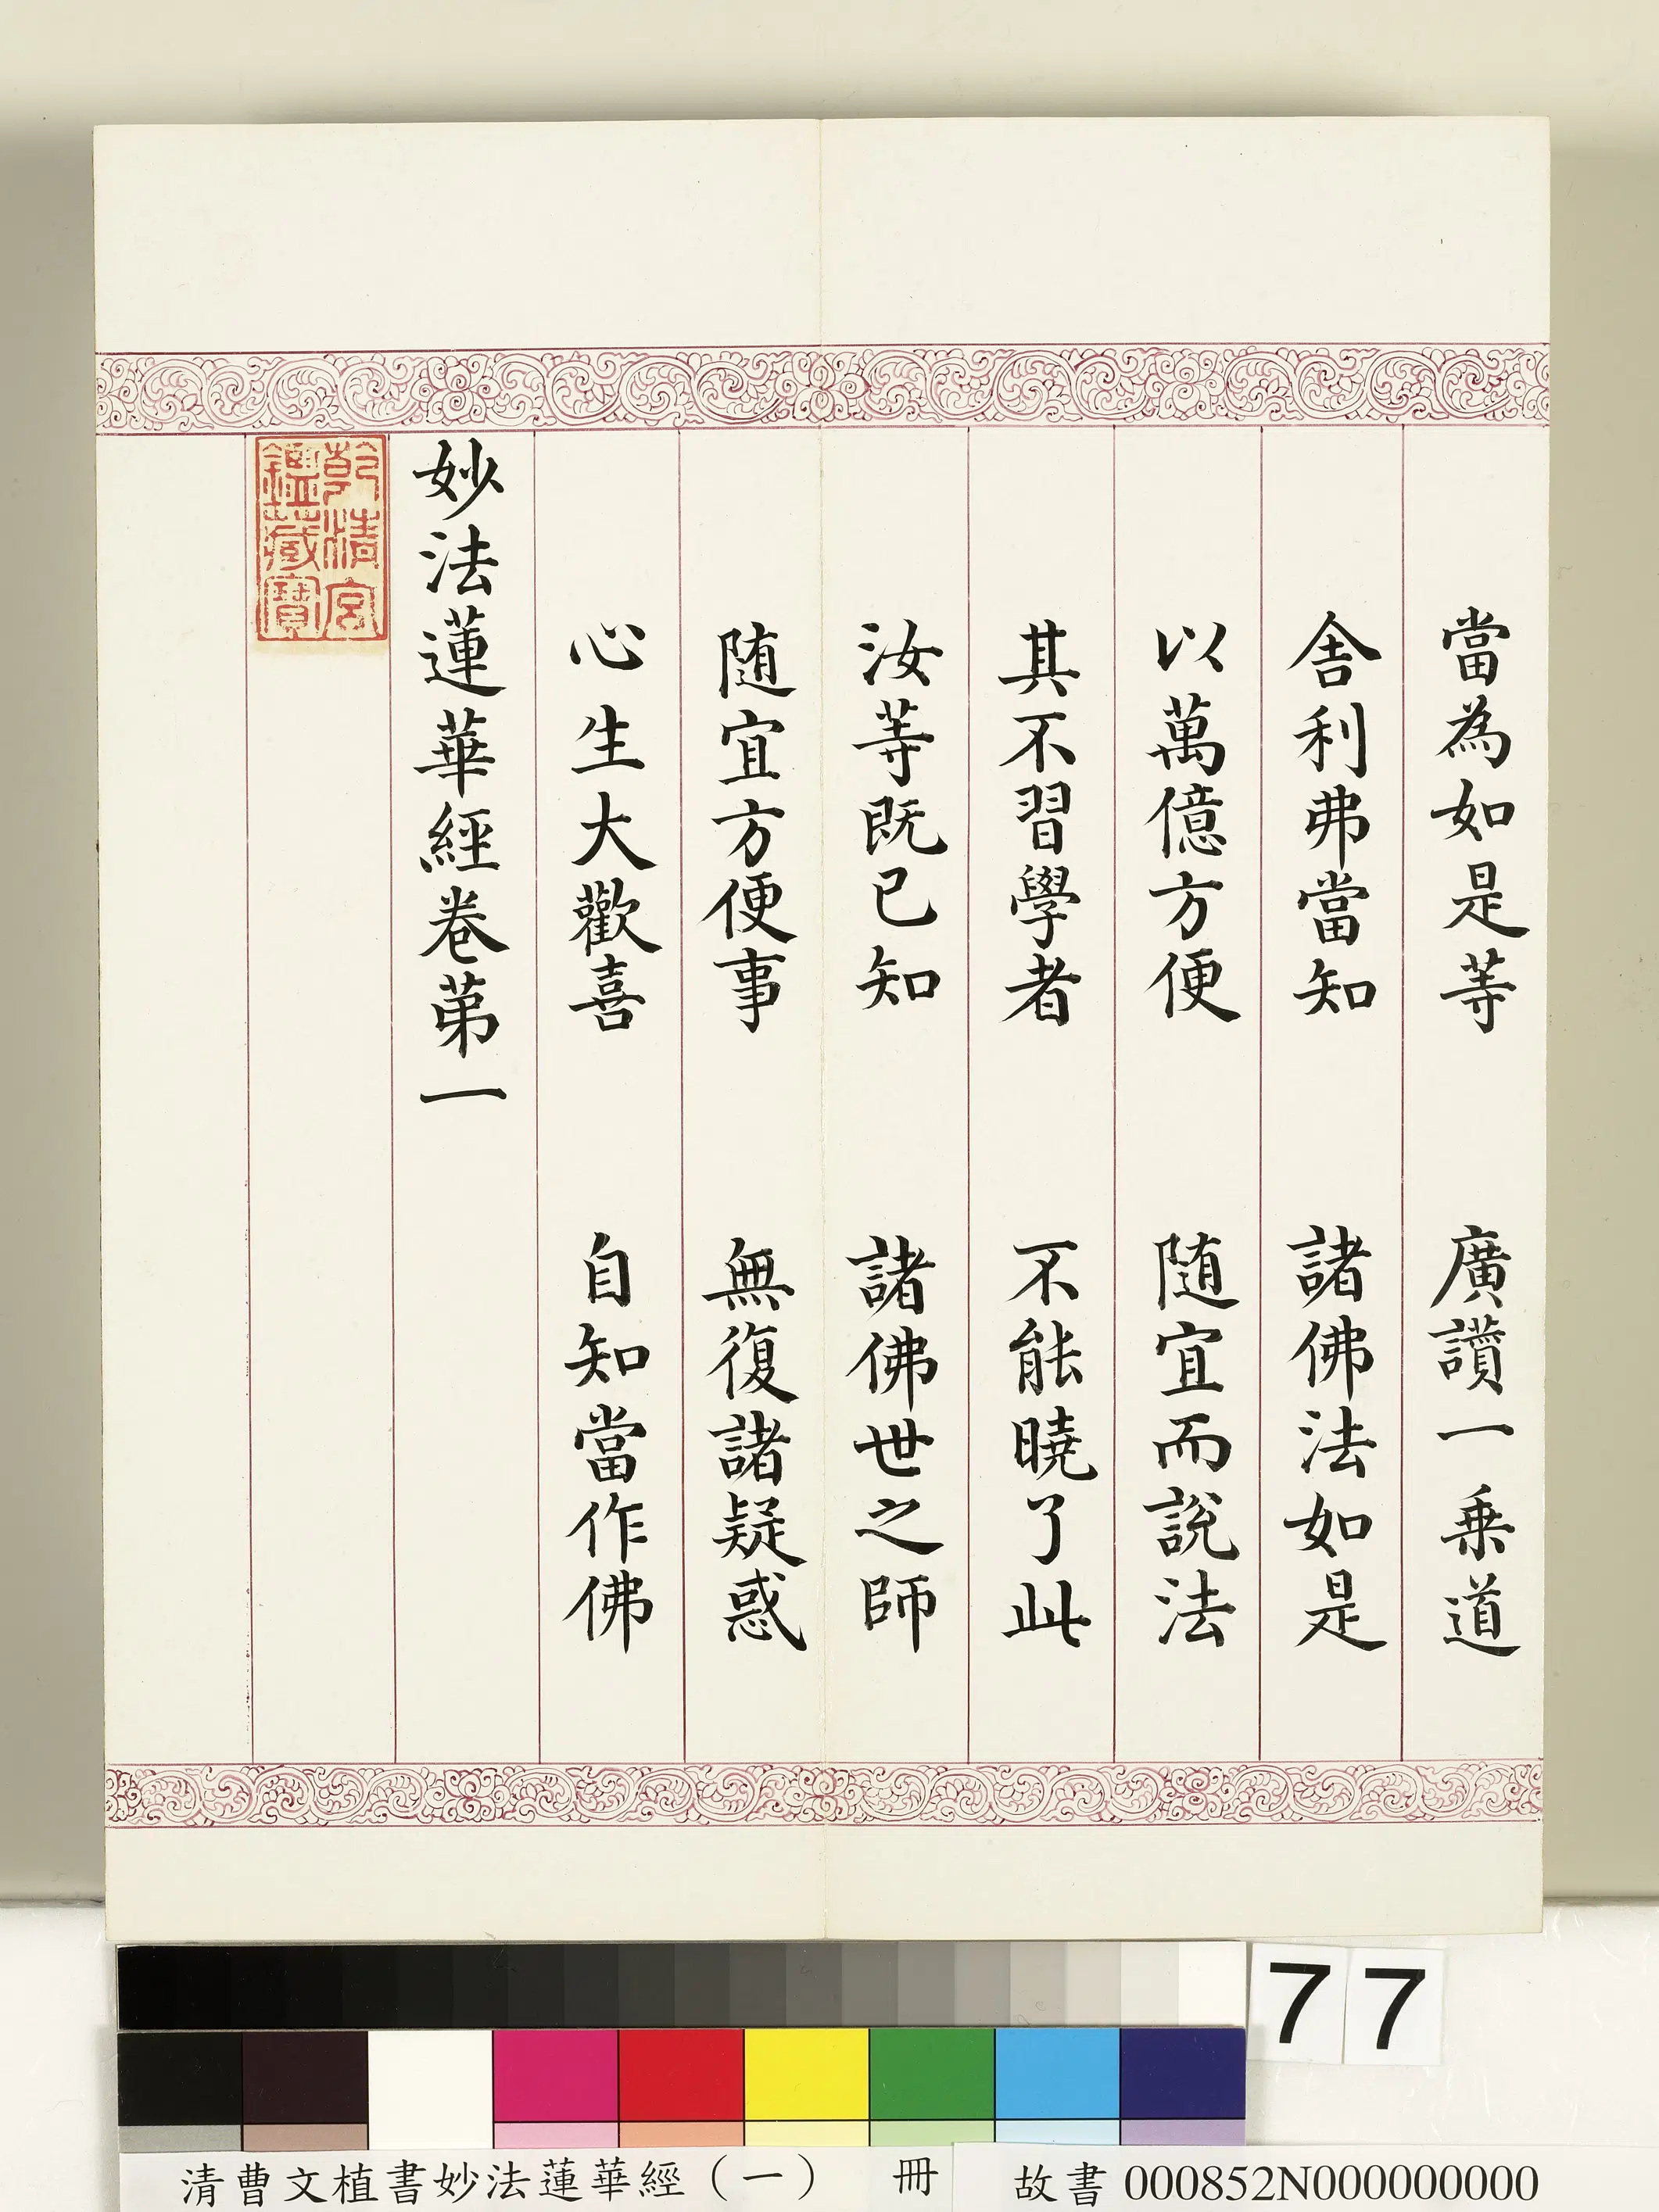 當為如是等　廣讚一乗道
舎利弗當知　諸佛法如是
以萬億方便　随宜而說法
其不習學者　不能曉了此
汝等既已知　諸佛世之師
随宜方便事　無復諸疑惑
心生大歡喜　自知當作佛
妙法蓮華經卷苐一
乾清宮
鑑藏寶
77
清曹文植書妙法蓮華經（一）　冊　故書 000852N000000000